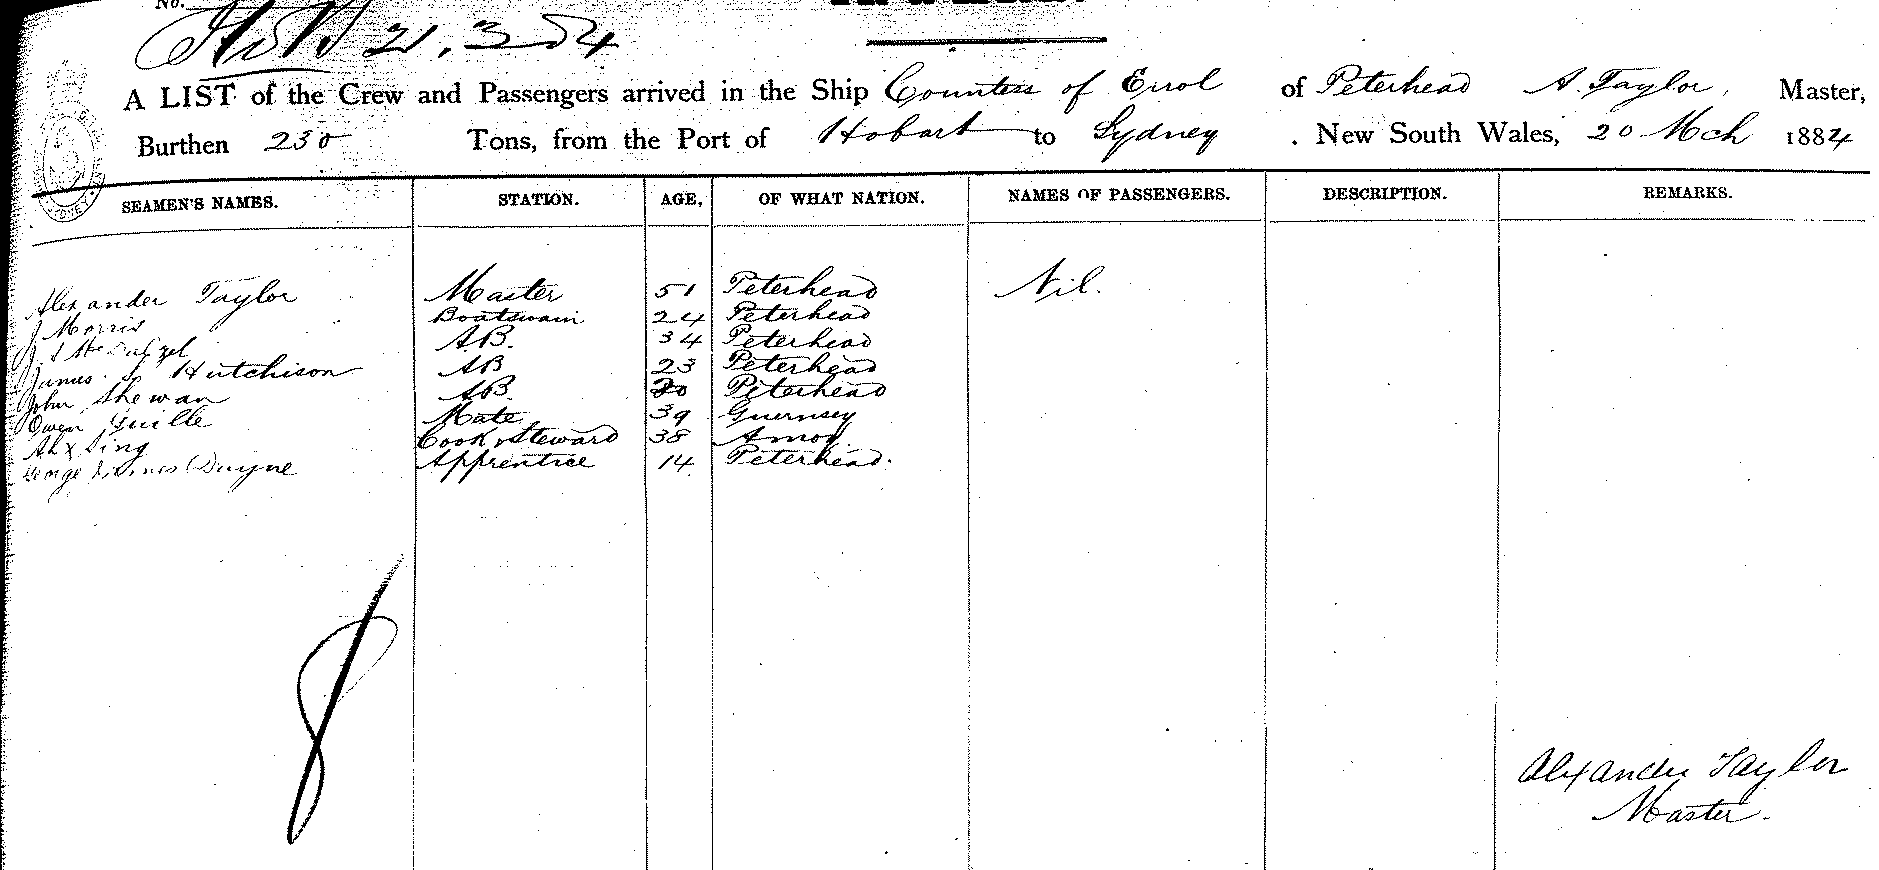 No.
21.3.84
A LIST of the Crew and Passengers arrived in the Ship Countess of Errol of Peterhead A. Taylor, Master,
Burthen 230 Tons, from the Port of Hobart to Sydney. New South Wales, 20 Mch 1884
SEAMEN'S NAMES. STATION. AGE, OF WHAT NATION. NAMES OF PASSENGERS. DESCRIPTION. REMARKS.
Alexander Taylor Master 51 Peterhead Nil.
J Morris Boatswain 24 Peterhead
AB. 34 Peterhead
James Hutchison AB 23 Peterhead
John Shewan AB. 20 Peterhead
Owen Guille Mate 39 Guernsey
Ah Sing Cook & Steward 38 Amoy.
George Duyne Apprentice 14 Peterhead.
Alexander Taylor
Master.